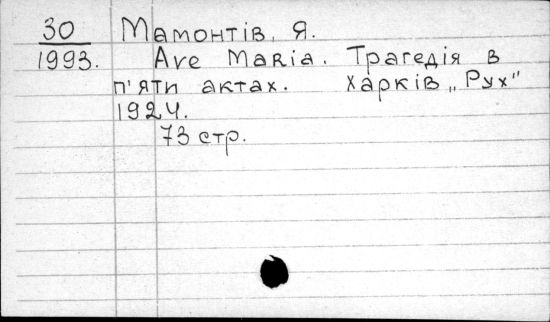 30 Мамонтів, Я.
1993. Ave Maria. Трагедія в
п'яти актах. Харків „Рух"
1924.
73 стр.